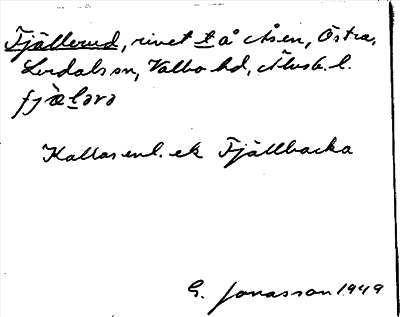 Fjällerud, rivet t å Åsen, Östra,
Lerdals sn, Valbo hd, Älvsb. l.
fjæ̀lərə
Kallas enl. ek Fjällbacka
G. Jonasson 1949